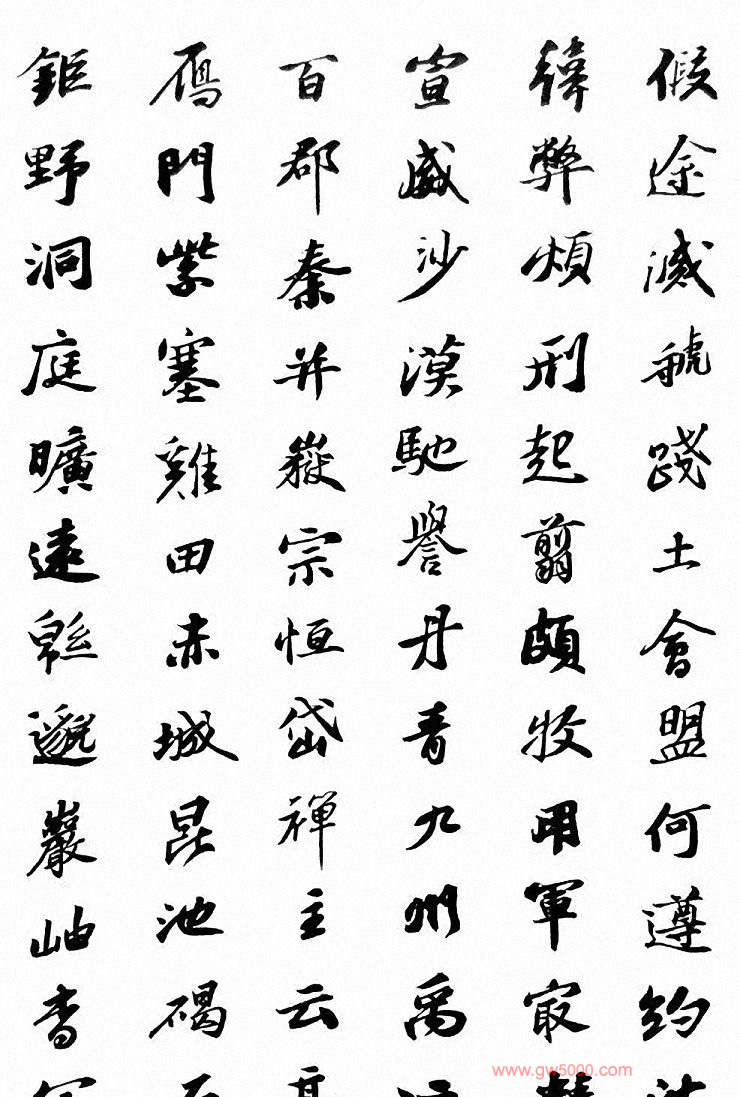 假途滅虢踐土會盟何遵約
韓弊煩刑起翦頗牧用軍最
宣威沙漠馳譽丹青九州禹
百郡秦并嶽宗恒岱禪主云
鴈門紫塞雞田赤城昆池碣
鉅野洞庭曠遠緜邈巖岫杳
www.gw5000.com